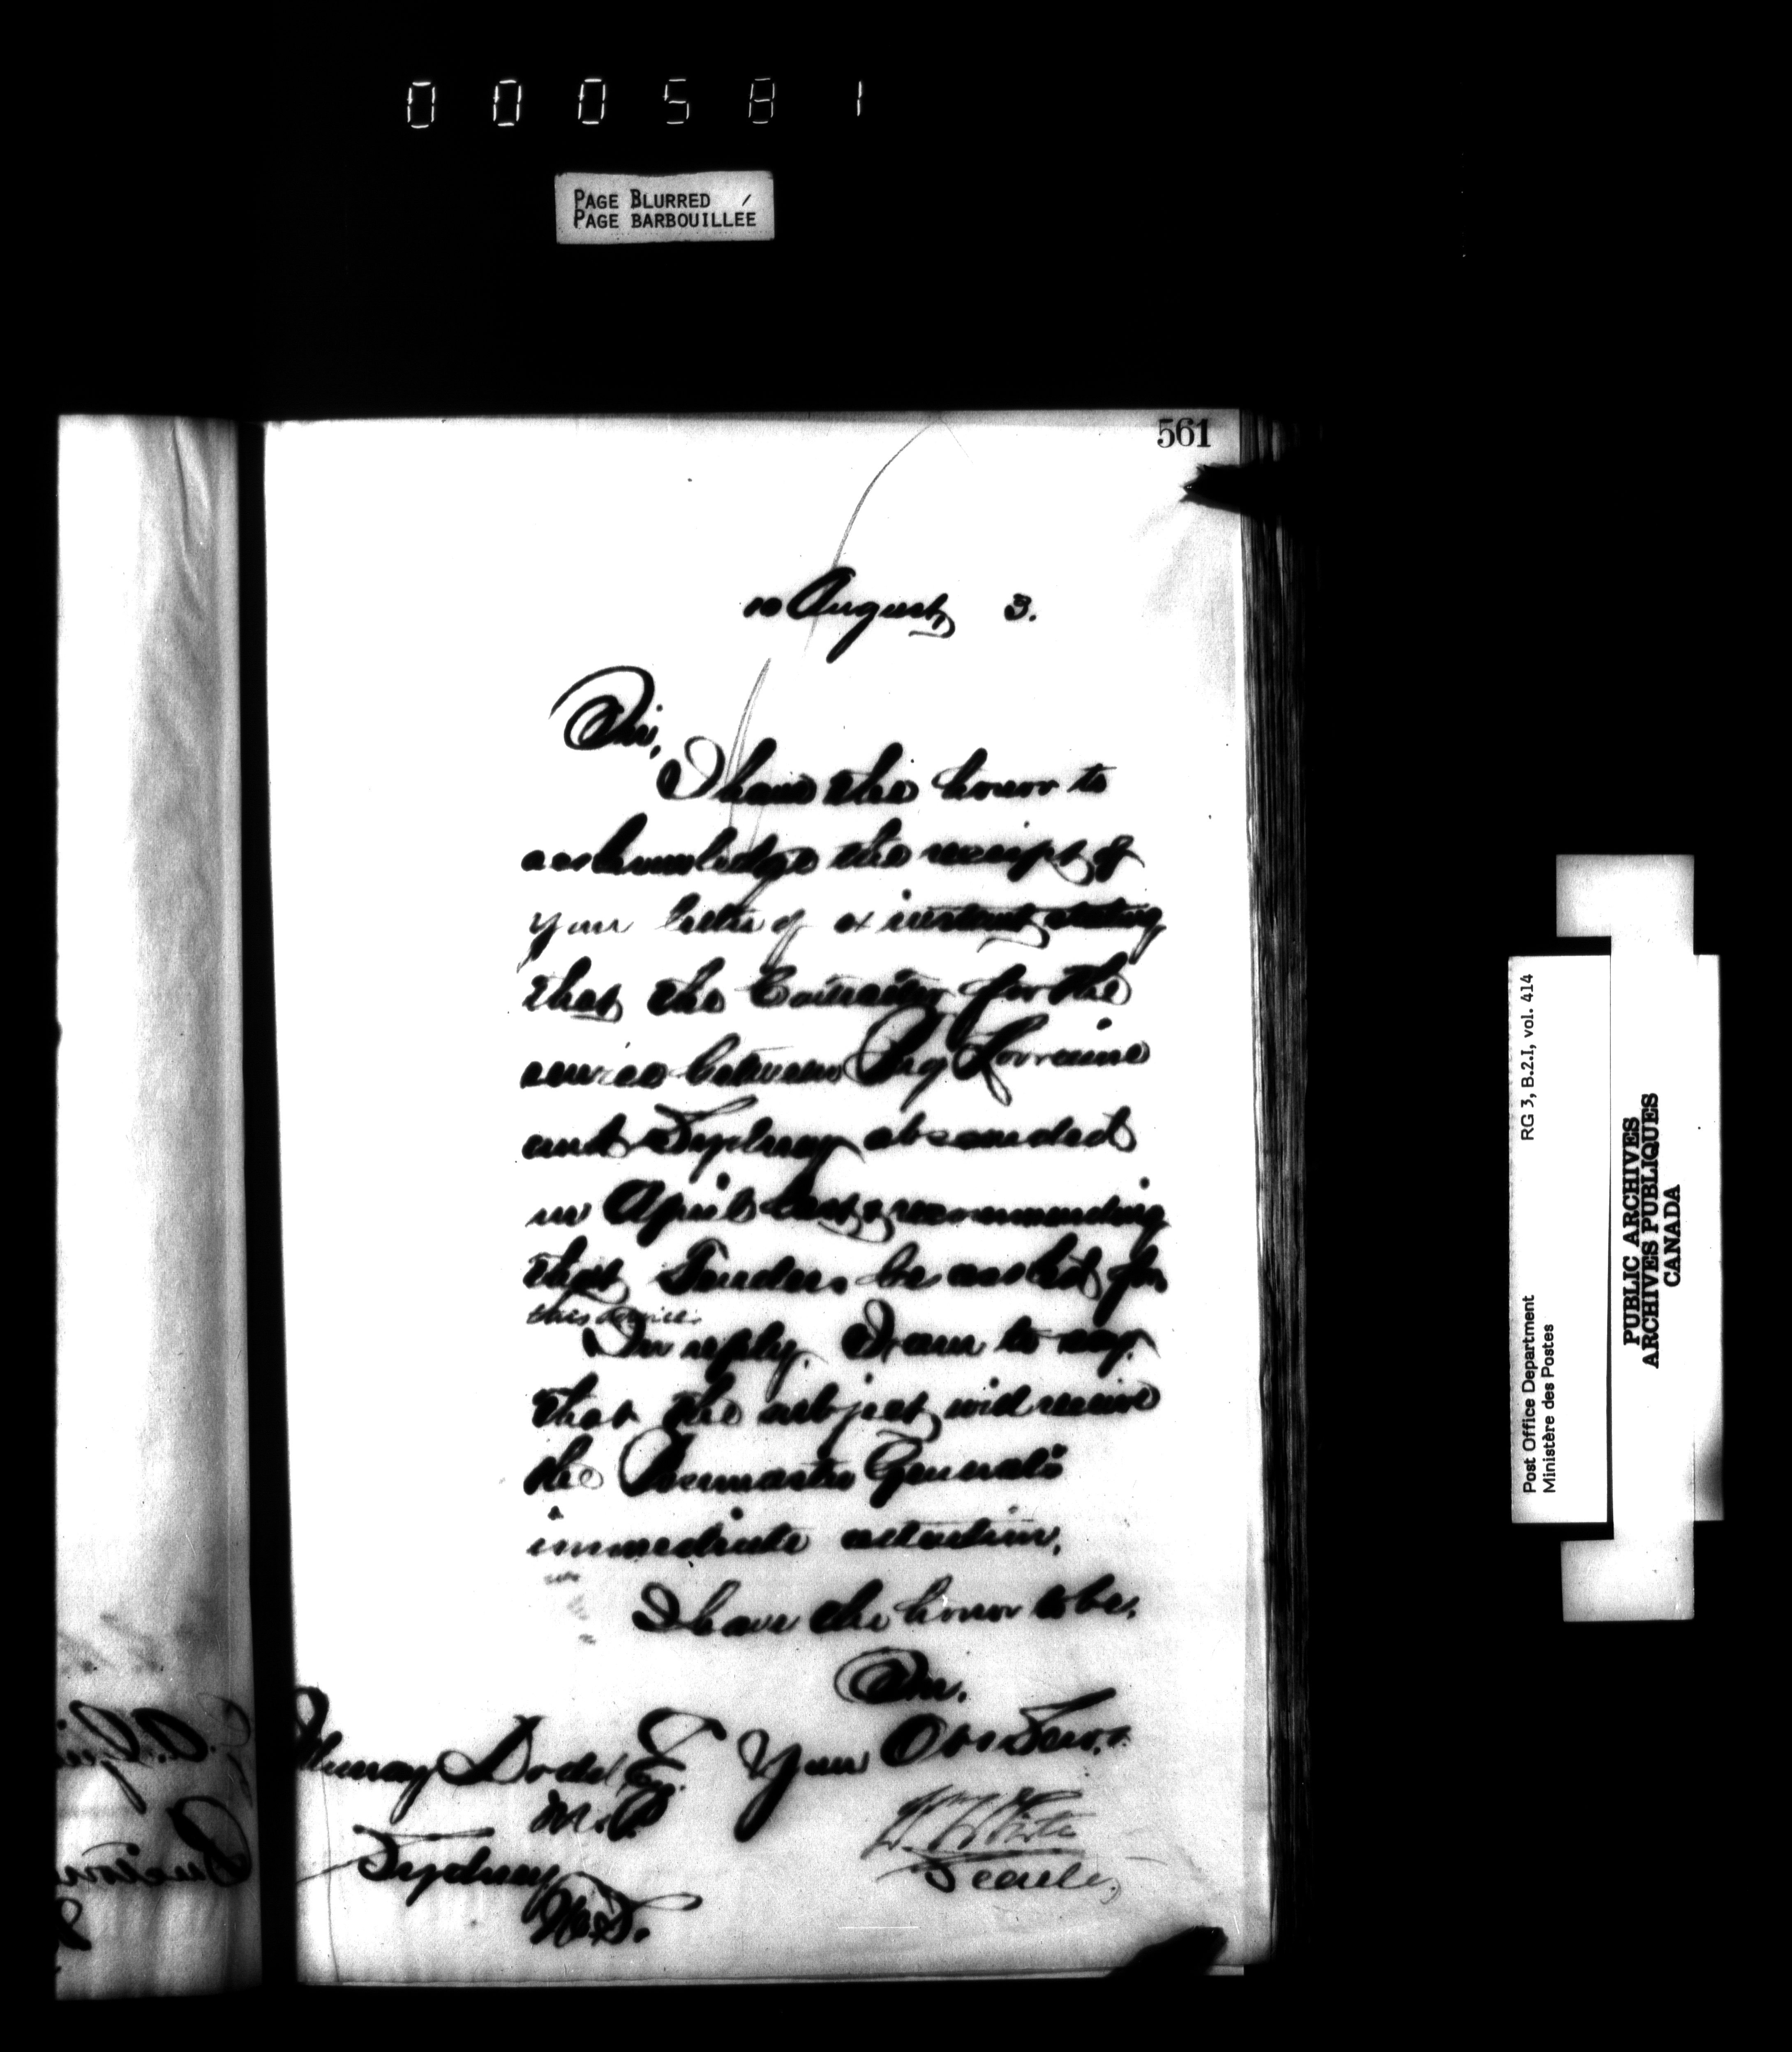 000581
PAGE BLURRED
PAGE BARBOUILLÉE
561
10 August, 3.
Sir,
I have the honor to
acknowledge the receipt of
your letter of instant stating
that the Contractor for the
service between Big Lorraine
and Sydney absconded
in April last & recommending
that Tenders be asked for
this service.
In reply, I am to say
that the subject will receive
the Postmaster General's
immediate attention.
I have the honor to be,
Sir,
Your Obt Servt.
Murray Dodd Esq.
M.P.
Sydney
N.S.
Wm White
Secretary
RG 3, B.2.I, vol. 414
Post Office Department
Ministère des Postes
PUBLIC ARCHIVES
ARCHIVES PUBLIQUES
CANADA